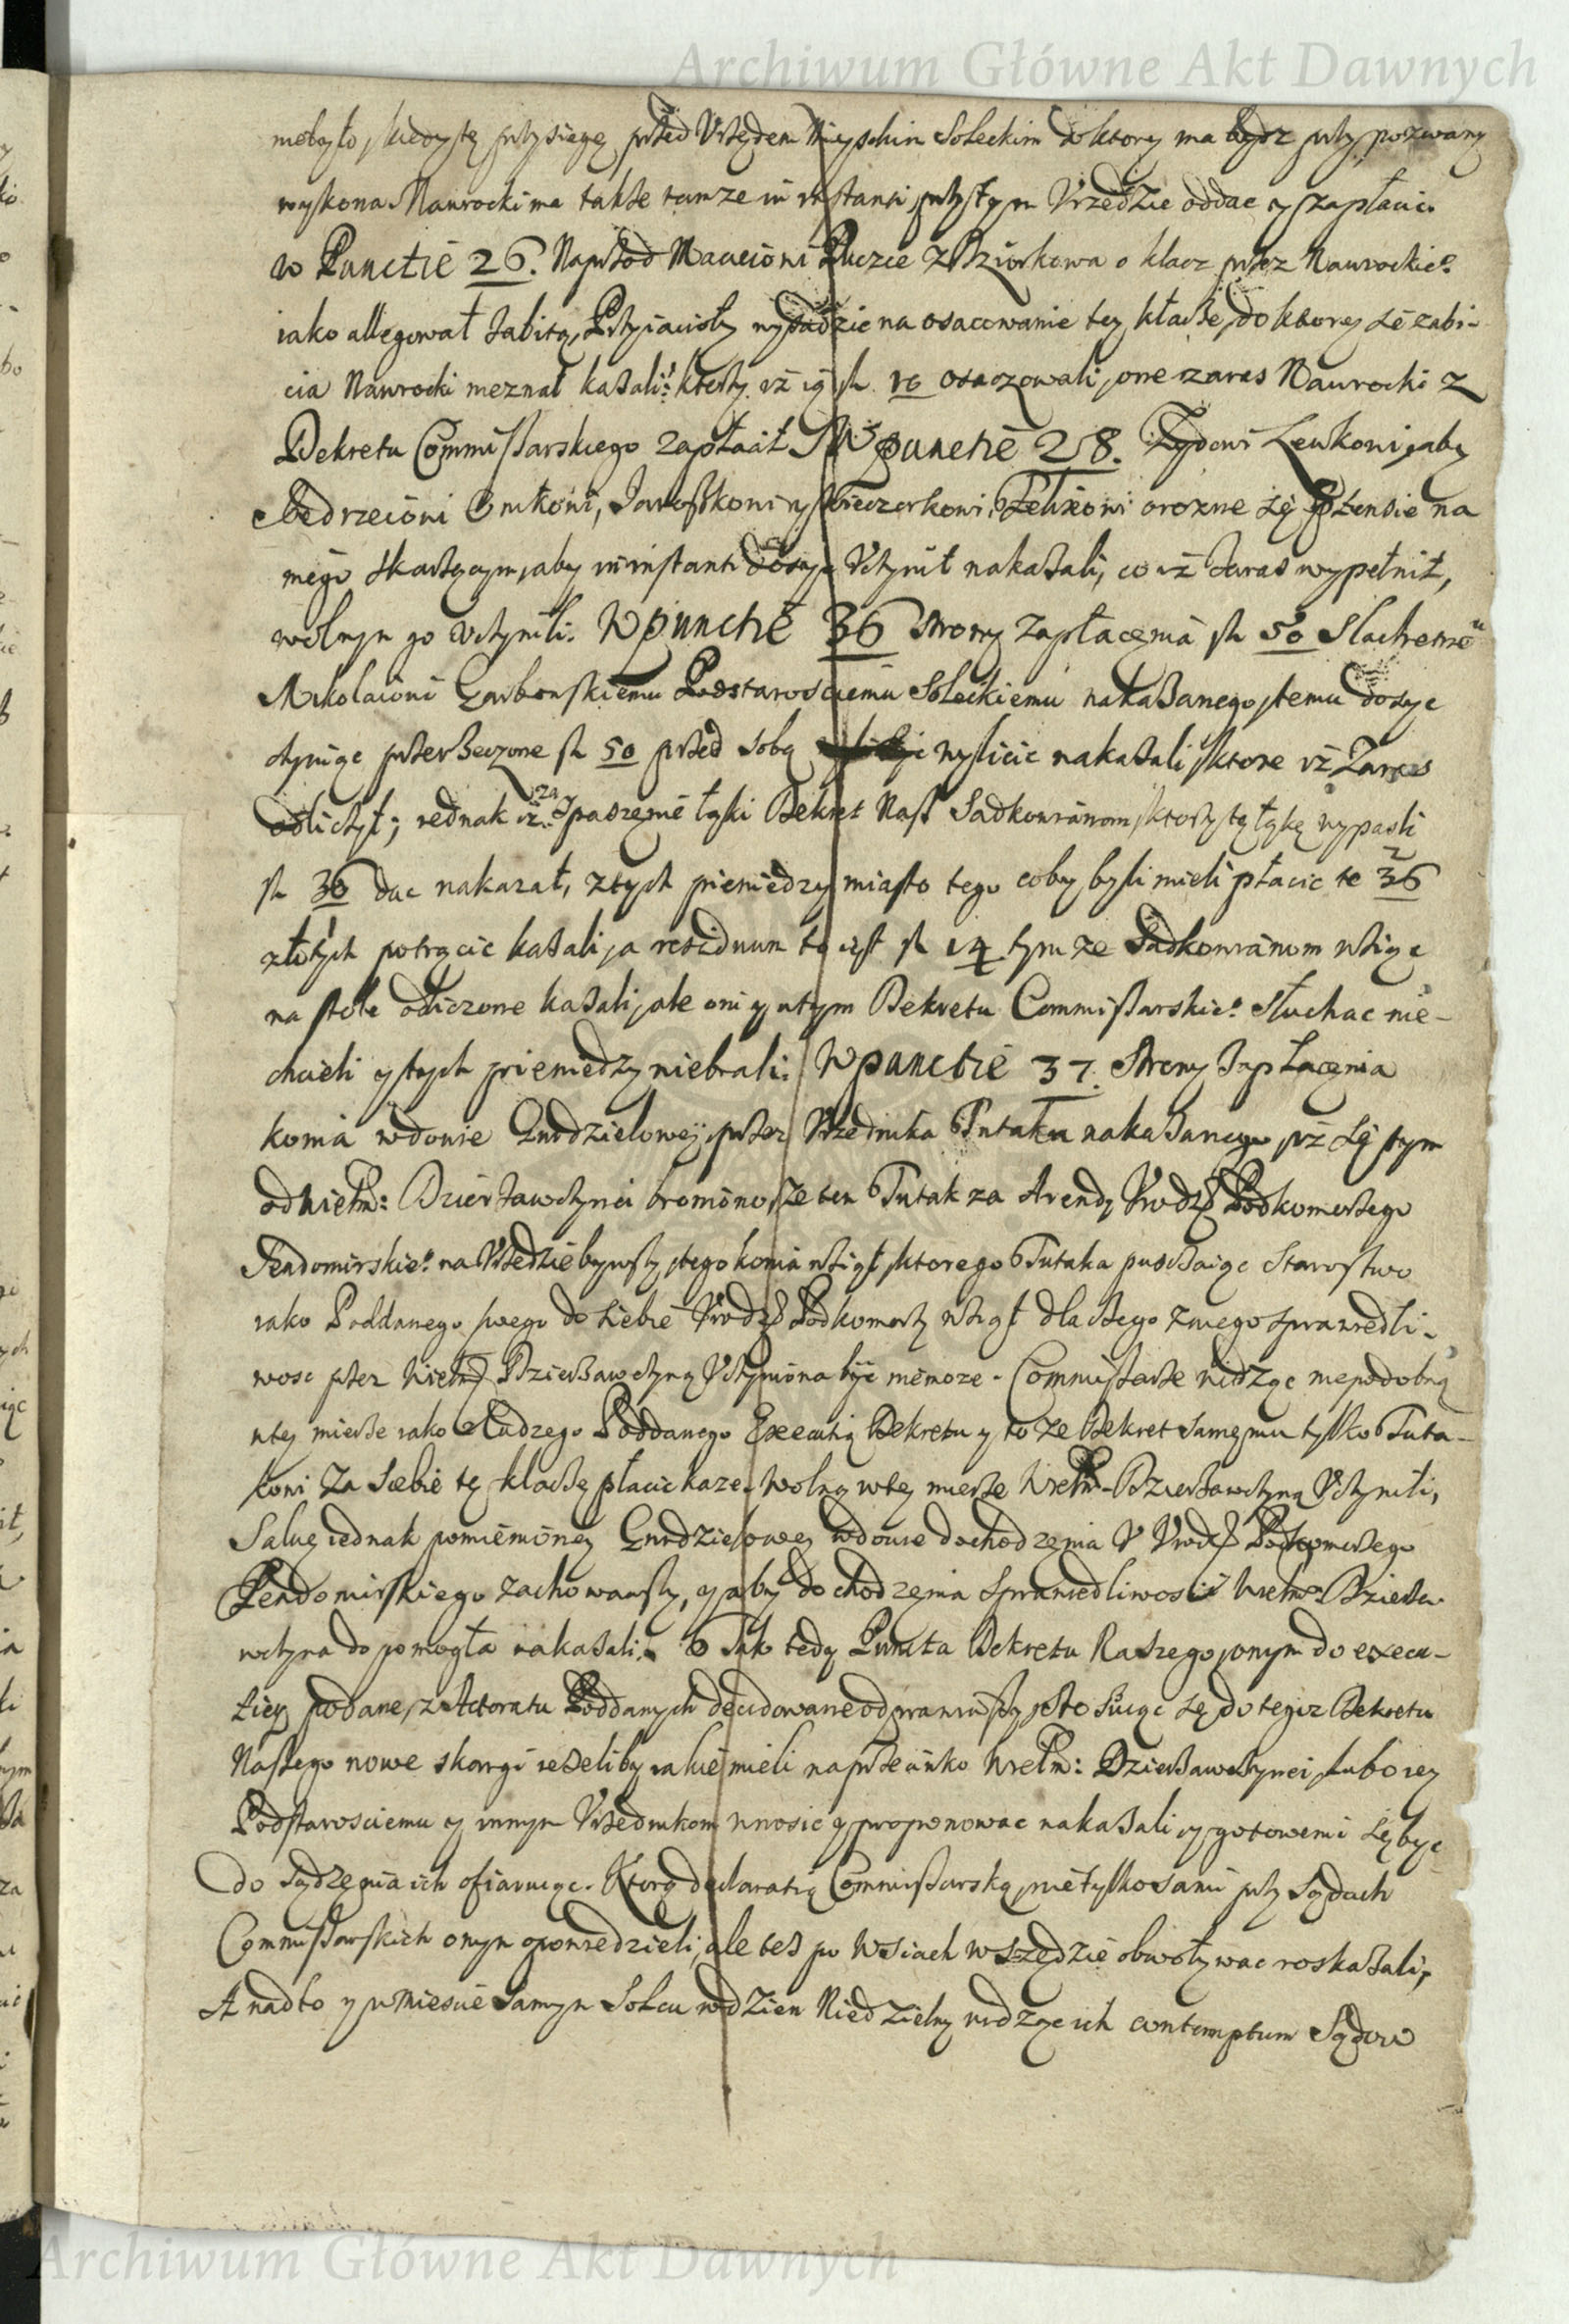 Archiwum Główne Akt Dawnych
niebyło, kiedy tę przysięgę przed Vrzędem Mieyskim Soleckim do ktorey ma bydz przypozwany
wykona Nawrocki ma także tamże in instanti przy tym Vrzędzie oddac y zapłacic.
w Punctie 26. Naprzod Maciciowi z Dziurkowa o klacz przez Nawrockie°
iako allegował zabitą, Przyiacioły wysadzic na osacowanie tey kłacze, do ktorey się zabi-
cia Nawrocki nieznał kazali: ktorzy iż ią fl 10 osaczowali, one zaras Nawrocki z
Dekretu Commissarskiego zapłacił. W punctie 28. Zydowi Lewkowi, aby
Jędrzeiowi, Jaroszkowi y Wieczorkowi, Felixowi orozne się prtensie na
niego skarzącym, aby in instanti dosyc Vczynił nakazali, co iż zaras wypełnił,
wolnym go vczynili. W punctie 36 strony zapłacenia fl 50 Slachetne°
Mikolaiowi Garbowskiemu Podstarosciemu Soleckiemu nakazanego, temu dosyc
czyniąc przerzeczone fl 50 przed sobą wyliczic nakazali, ktore iż Zaras
odliczył; iednak iż za spaszenie łąki Dekret Nasz Sadkowianom, ktorzy tę łąkę wypasli
fl 36 dac nakazał, z tych pieniedzy miasto tego coby byli mieli płacic te 36
złotych potrącic kazali, a residuum to iest fl 14 tymze Sadkowianom wziąc
na stole odliczone kazali, ale oni y wtym Dekretu Commissarskie° słuchac nie-
chcieli y tych pieniedzy niebrali. W punctie 37. strony Zapłacenia
konia wdowie Gurdzielowey, przez Vrzednika Tutaka nakazanego, iż się tym
od Wielm: Dzierzawczynei broniono, że ten Tutak za Arendy Vrodz Podkomorzego
Sendomirskie° na Vrzedzie bywszy, tego konia wziął, ktorego Tutaka pusczaiąc Starostwo
iako Poddanego swego do siebie Vrodz Podkomorzy wziął dla czego z niego sprawiedli-
wosc przez Wielm Dzierzawczyną Vczyniona byc niemoze. Commissarze widząc niepodobną
wtey mierze iako Cudzego Poddanego Executią Dekretu y to ze Dekret samemu tylko Tuta-
kowi Za siebie tę klaczę płacic kaze. Wolną wtey mierze Wielm. Dzierzawczyną Vczynili,
Salwę iednak pomienioney Gurdzielowey wdowie dochodzenia V Vrodz Podkomorzego
Sendomirskiego zachowawszy, y aby do chodzenia sprawiedliwosci Wielm. Dzierza-
wczyna dopomogła nakazali. Tak tedy Puncta Dekretu Naszego, onym do execu-
tiey podane, z Actoratu Poddanych decidowane odprawiwszy, stosuiąc się do tegoz Dekretu
Naszego nowe skargi iezeliby iakie mieli naprzeciwko Wielm: Dzierzawczynei, lubo iey
Podstarosciemu y innym Vrzednikom wnosic y proponowac nakazali, y gotowemi się byc
do sądzenia ich ofiaruiąc. Ktorą declaratią Commissarską, nietylko sami przy Sądach
Commissarskich onym opowiedzieli, ale tez po Wsiach wszędzie obwoływac roskazali,
A nadto y w Miescie samym Solcu w dzien Niedzielny widząc ich contemptum Sądow
Archiwum Główne Akt Dawnych